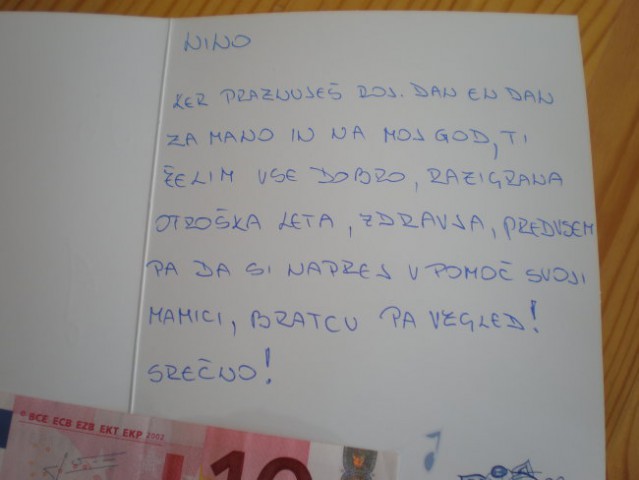 NINO
KER PRAZNUJEŠ ROJ. DAN EN DAN
ZA MANO IN NA MOJ GOD, TI
ŽELIM VSE DOBRO, RAZIGRANA
OTROŠKA LETA, ZDRAVJA, PREDVSEM
PA DA SI NAPREJ V POMOČ SVOJI
MAMICI, BRATCU PA VZGLED!
SREČNO!
© BCE ECB EZB EKT EKP 2002
10